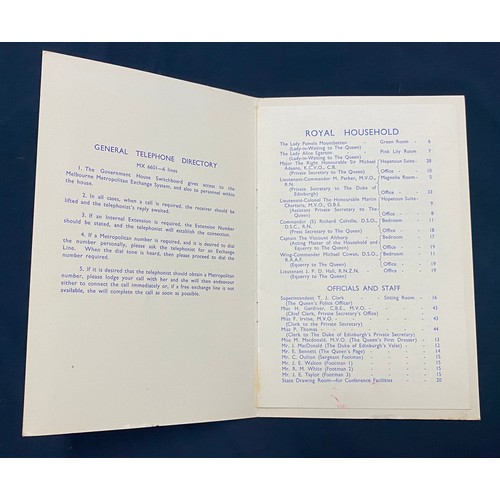 GENERAL TELEPHONE DIRECTORY
MX 6601—6 lines
1. The Government House Switchboard gives access to the
Melbourne Metropolitan Exchange System, and also to personnel within
the house.
2. In all cases, when a call is required, the receiver should be
lifted and the telephonist's reply awaited.
3. If an Internal Extension is required, the Extension Number
should be stated, and the telephonist will establish the connection.
4. If a Metropolitan number is required, and it is desired to dial
the number personally, please ask the telephonist for an Exchange
Line. When the dial tone is heard, then please proceed to dial the
number required.
5. If it is desired that the telephonist should obtain a Metropolitan
number, please lodge your call with her and she will then endeavour
either to connect the call immediately or, if a free exchange line is not
available, she will complete the call as soon as possible.
ROYAL HOUSEHOLD
The Lady Pamela Mountbatten - Green Room - 6
(Lady-in-Waiting to The Queen)
The Lady Alice Egerton - Pink Lily Room - 7
(Lady-in-Waiting to The Queen)
Major The Right Honourable Sir Michael Hopetoun Suite - 28
Adeane, K.C.V.O., C.B. Office - 10
(Private Secretary to The Queen)
Lieutenant-Commander M. Parker, M.V.O., Magnolia Room - 5
R.N.
(Private Secretary to The Duke of Office - 33
Edinburgh)
Lieutenant-Colonel The Honourable Martin Hopetoun Suite -
Charteris, M.V.O., O.B.E. 9
(Assistant Private Secretary to Office - 11
The Queen)
Commander (S) Richard Colville, D.S.O., Bedroom - 8
D.S.C., R.N.
(Press Secretary to The Queen) Office - 18
Captain The Viscount Althorp Bedroom - 17
(Acting Master of the Household and Office - 19
Equerry to The Queen)
Wing-Commander Michael Cowan, D.S.O., Bedroom - 11
R.A.A.F.
(Equerry to The Queen) Office - 19
Lieutenant J. P. D. Hall, R.N.Z.N. Office - 19
(Equerry to The Queen)
OFFICIALS AND STAFF
Superintendent T. J. Clark - Sitting Room - 16
(The Queen's Police Officer)
Miss H. Gardiner, C.B.E., M.V.O. - 43
(Chief Clerk, Private Secretary's Office)
Miss F. Irvine, M.V.O. - 43
(Clerk to the Private Secretary)
Miss P. Thomas - 44
(Clerk to The Duke of Edinburgh's Private Secretary)
Miss M. Macdonald, M.V.O. (The Queen's First Dresser) - 13
Mr. J. MacDonald (The Duke of Edinburgh's Valet) - 12
Mr. E. Bennett (The Queen's Page) - 14
Mr. C. Oulton (Sergeant Footman) - 15
Mr. J. E. Walton (Footman 1) - 15
Mr. R. M. White (Footman 2) - 15
Mr. J. E. Taylor (Footman 3) - 15
State Drawing Room—for Conference Facilities - 20